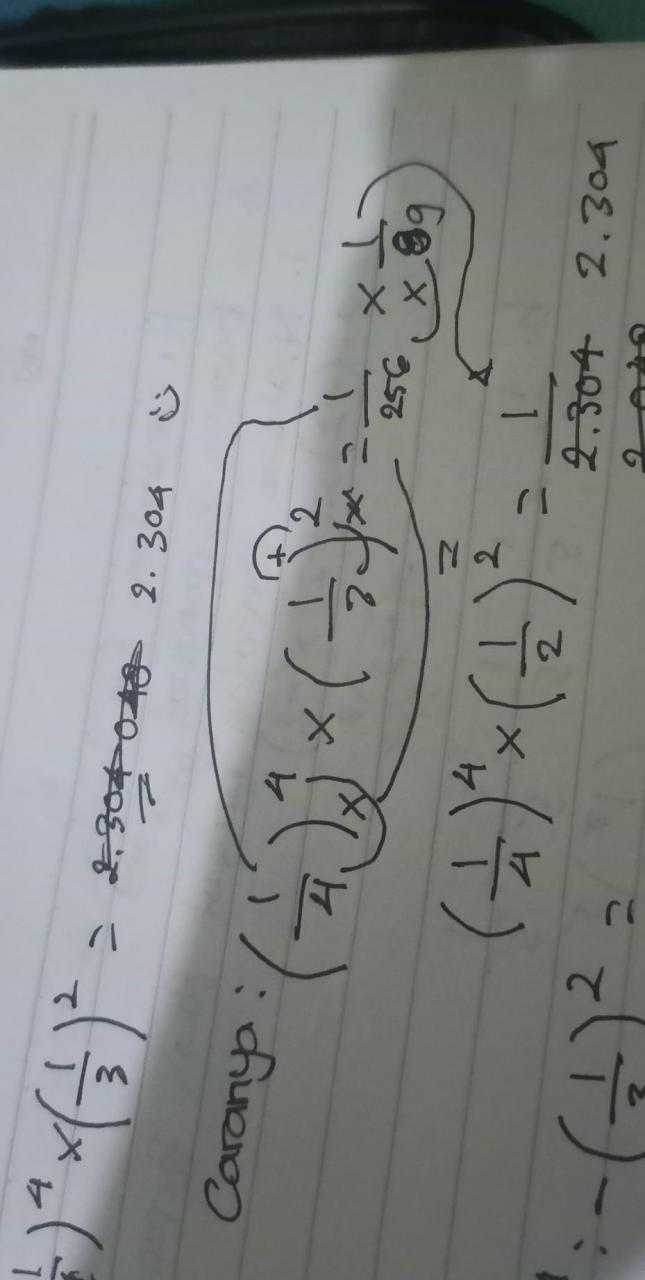 )⁴ × (1/3)² = 2.304 :)
Caranya : (1/4)⁴ × (1/3)² = 1/256 × 1/9
=
(1/4)⁴ × (1/2)² = 1/2.304 2.304
: - (1/3)² =